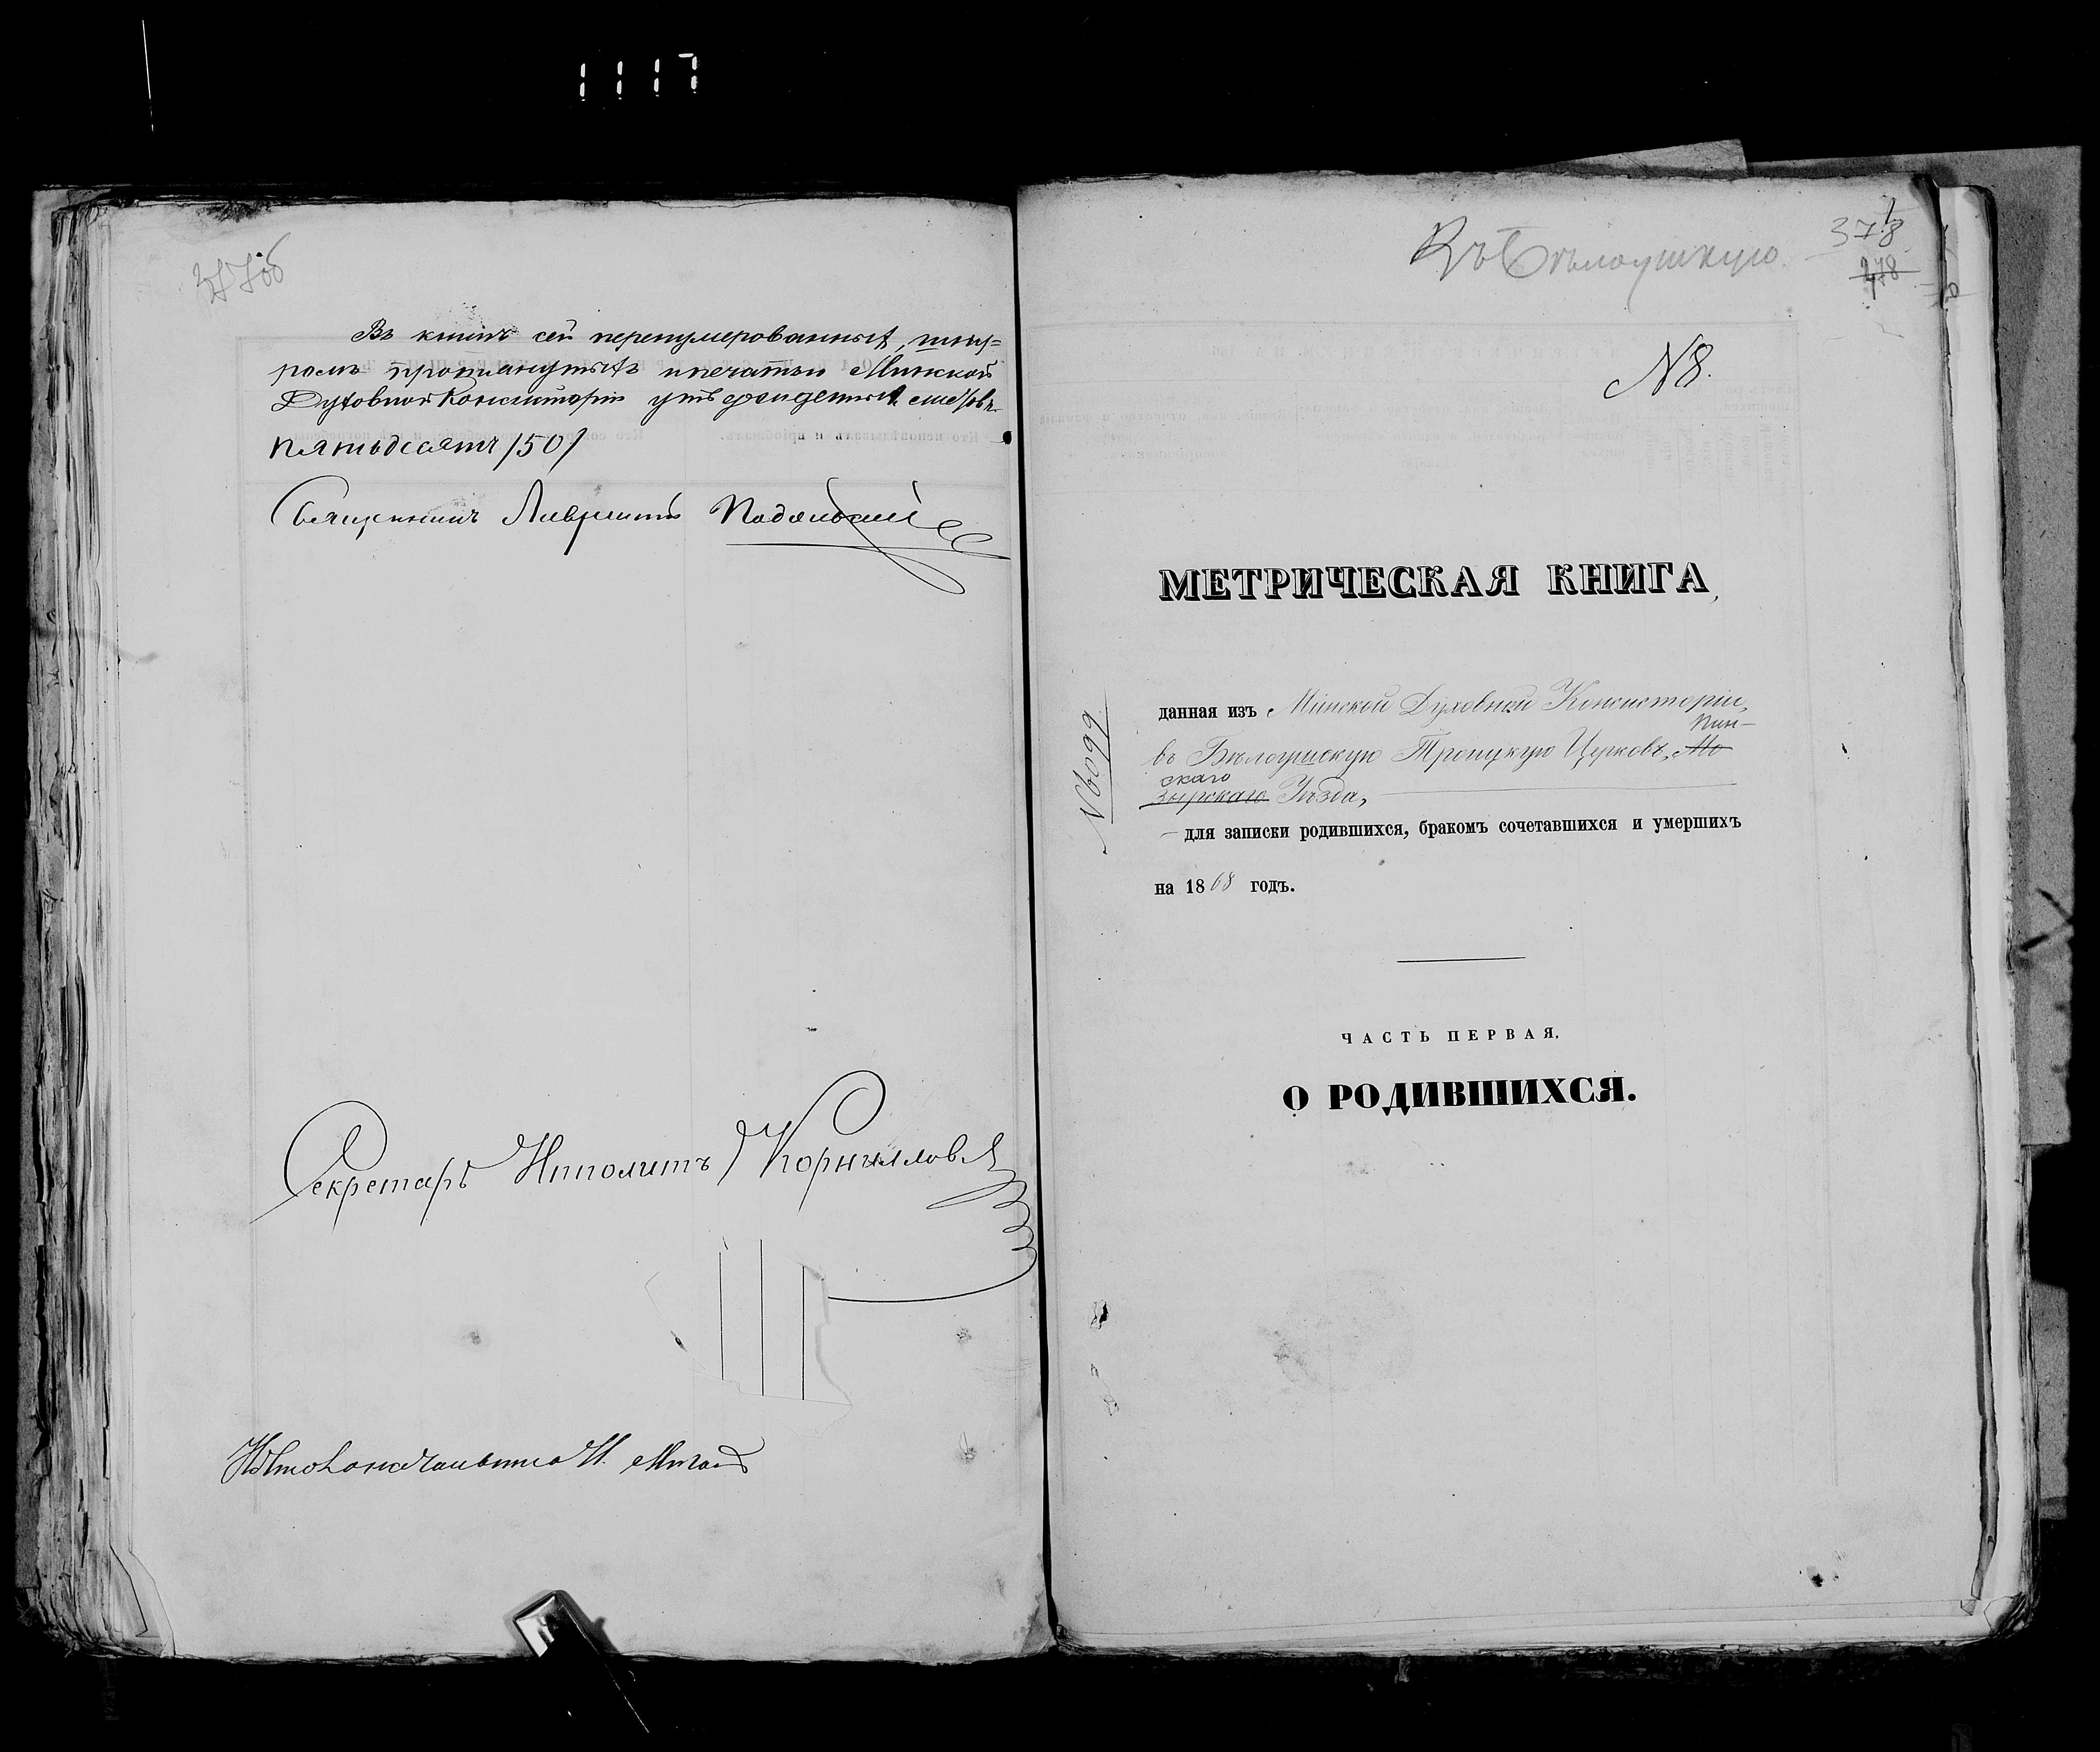 1117
377об
Въ книгѣ сей перенумерованныхъ, шну-
ромъ протянутыхъ и печатью Минской
Духовной Консисторіи утвержденныхъ листовъ
пятьдесятъ /50/
Священникъ Лаврентій
Секретарь Ипполитъ Корниловъ
1
378
278
Въ Бѣлоушкую
N 8.
МЕТРИЧЕСКАЯ КНИГА,
N 6099
данная изъ Минской Духовной Консисторіи,
Пин-
въ Бѣлоушскую Троицкую Церковь, Мо
скаго
зырскаго Уѣзда,
для записки родившихся, бракомъ сочетавшихся и умершихъ
на 1868 годъ.
ЧАСТЬ ПЕРВАЯ.
О РОДИВШИХСЯ.